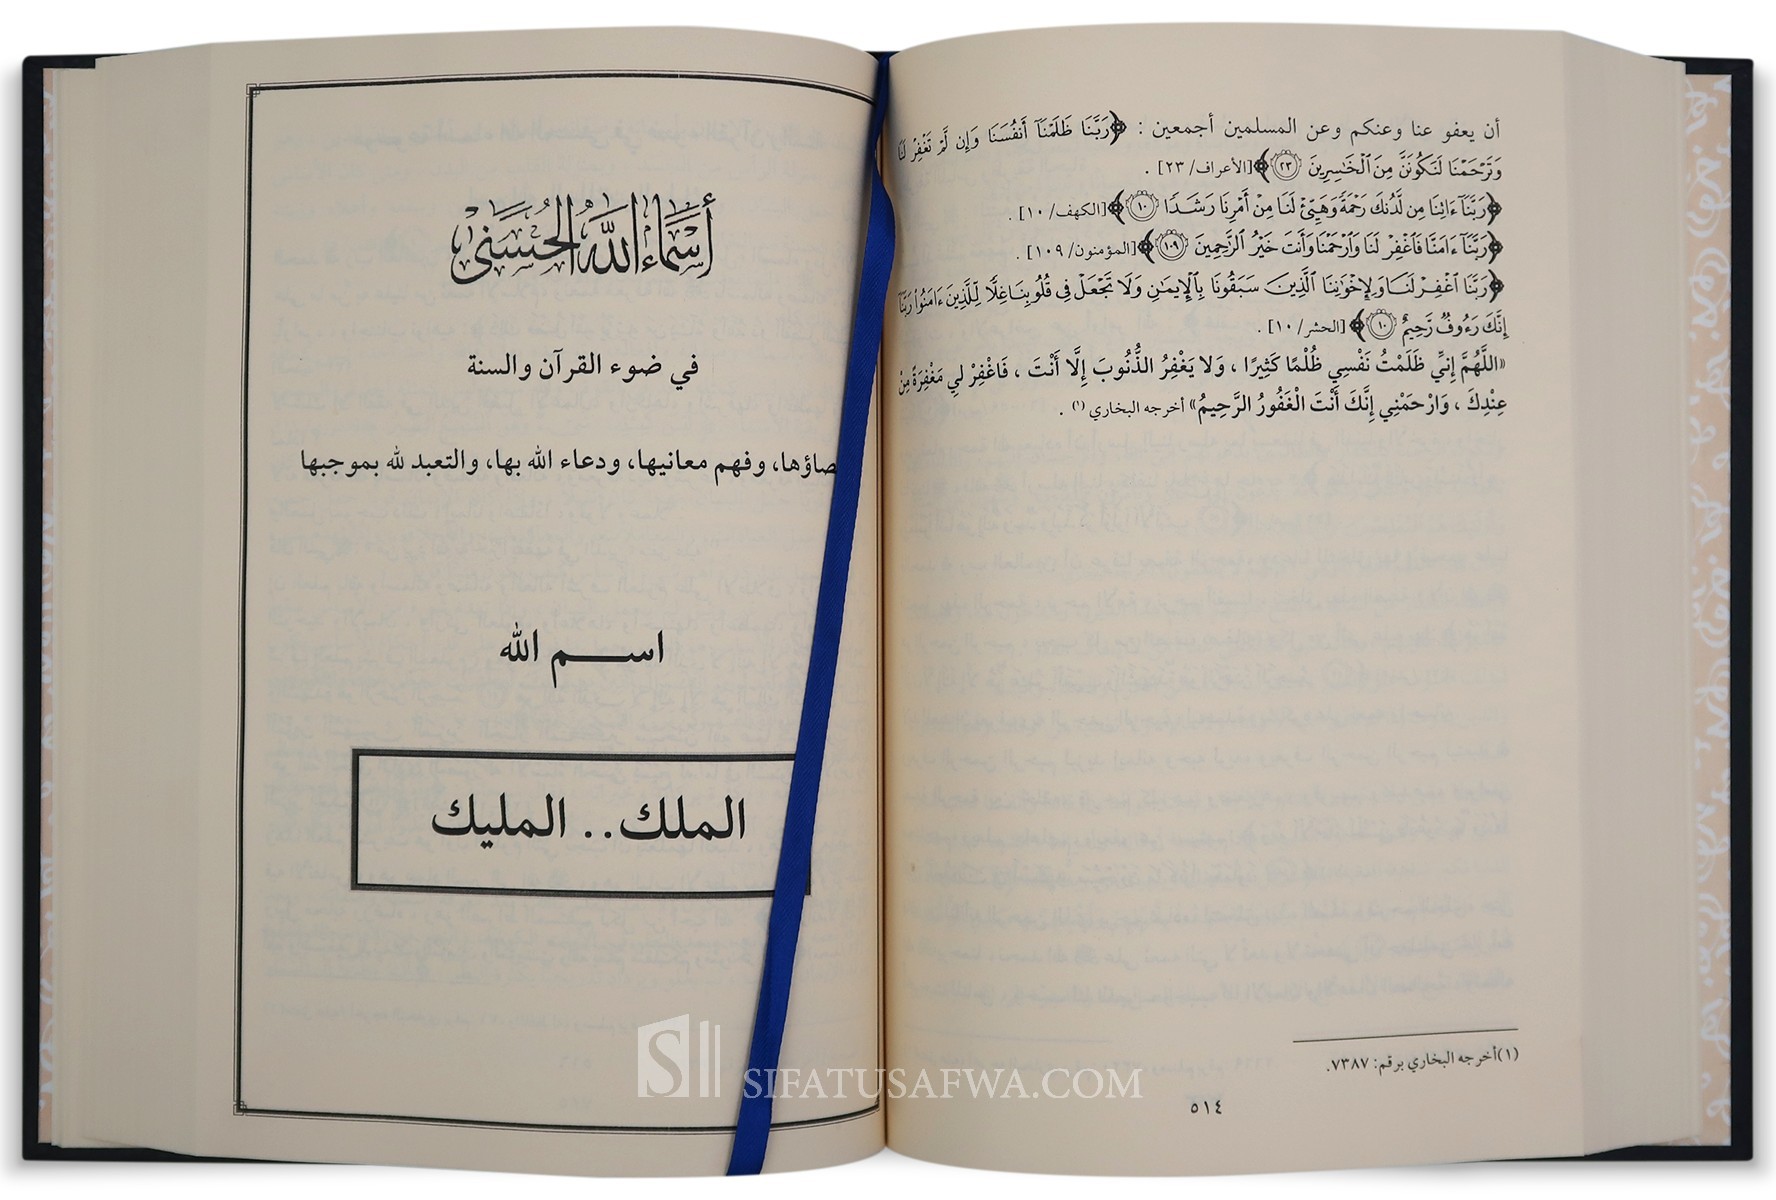 أن يعفو عنا وعنكم وعن المسلمين أجمعين : ﴿رَبَّنَا ظَلَمْنَآ أَنفُسَنَا وَإِن لَّمْ تَغْفِرْ لَنَا
وَتَرْحَمْنَا لَنَكُونَنَّ مِنَ ٱلْخَٰسِرِينَ ٢٣﴾ [الأعراف/ ٢٣] .
﴿رَبَّنَآ ءَاتِنَا مِن لَّدُنكَ رَحْمَةً وَهَيِّئْ لَنَا مِنْ أَمْرِنَا رَشَدًا ١٠﴾ [الكهف/ ١٠] .
﴿رَبَّنَآ ءَامَنَّا فَٱغْفِرْ لَنَا وَٱرْحَمْنَا وَأَنتَ خَيْرُ ٱلرَّٰحِمِينَ ١٠٩﴾ [المؤمنون/ ١٠٩] .
﴿رَبَّنَا ٱغْفِرْ لَنَا وَلِإِخْوَٰنِنَا ٱلَّذِينَ سَبَقُونَا بِٱلْإِيمَٰنِ وَلَا تَجْعَلْ فِى قُلُوبِنَا غِلًّا لِّلَّذِينَ ءَامَنُوا۟ رَبَّنَآ
إِنَّكَ رَءُوفٌ رَّحِيمٌ ١٠﴾ [الحشر/ ١٠] .
«اللَّهُمَّ إِنِّي ظَلَمْتُ نَفْسِي ظُلْمًا كَثِيرًا ، وَلَا يَغْفِرُ الذُّنُوبَ إِلَّا أَنْتَ ، فَاغْفِرْ لِي مَغْفِرَةً مِنْ
عِنْدِكَ ، وَارْحَمْنِي إِنَّكَ أَنْتَ الْغَفُورُ الرَّحِيمُ» أخرجه البخاري (١) .
(١) أخرجه البخاري برقم: ٧٣٨٧.
٥١٤
أسماء الله الحسنى
في ضوء القرآن والسنة
وفهم معانيها، ودعاء الله بها، والتعبد لله بموجبها
اسم الله
الملك.. المليك
SIFATUSAFWA.COM